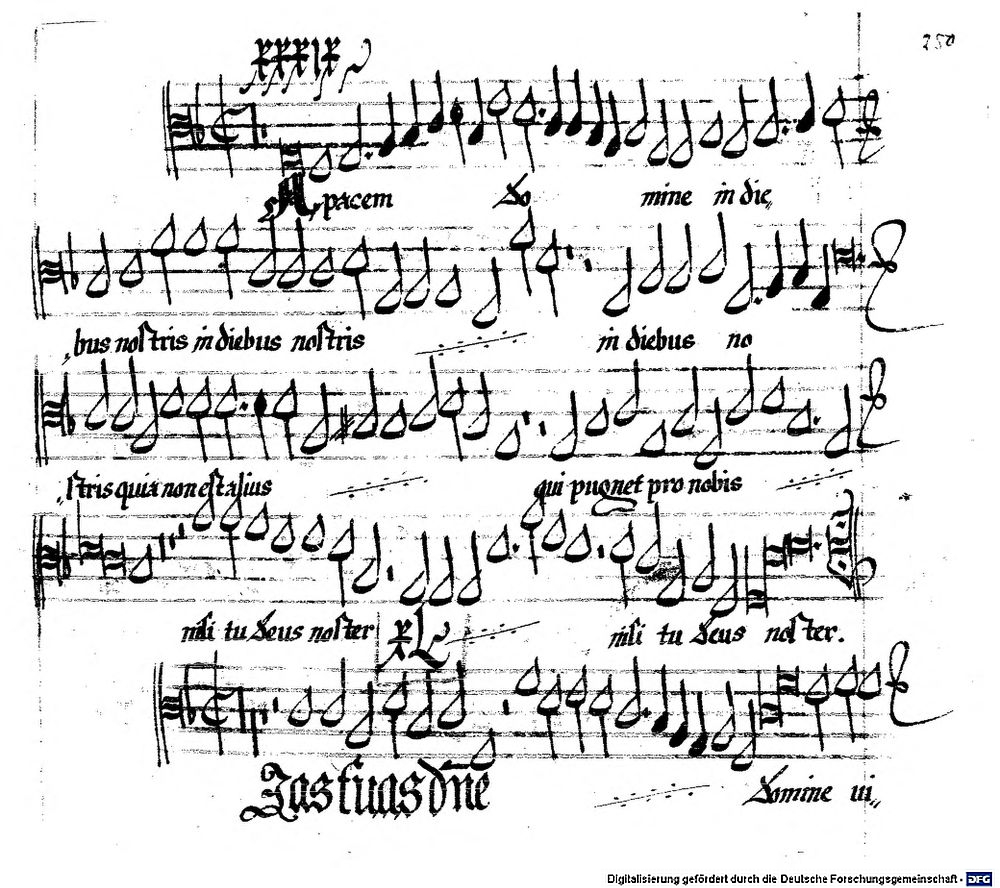 XXXIX
250
A, pacem Do mine in die,,
,,bus nostris in diebus nostris in diebus no
,,stris quia non est alius qui pugnet pro nobis
nisi tu Deus noster nisi tu Deus noster.
XL
Ias tuas dñe Domine ui,,
Digitalisierung gefördert durch die Deutsche Forschungsgemeinschaft - DFG